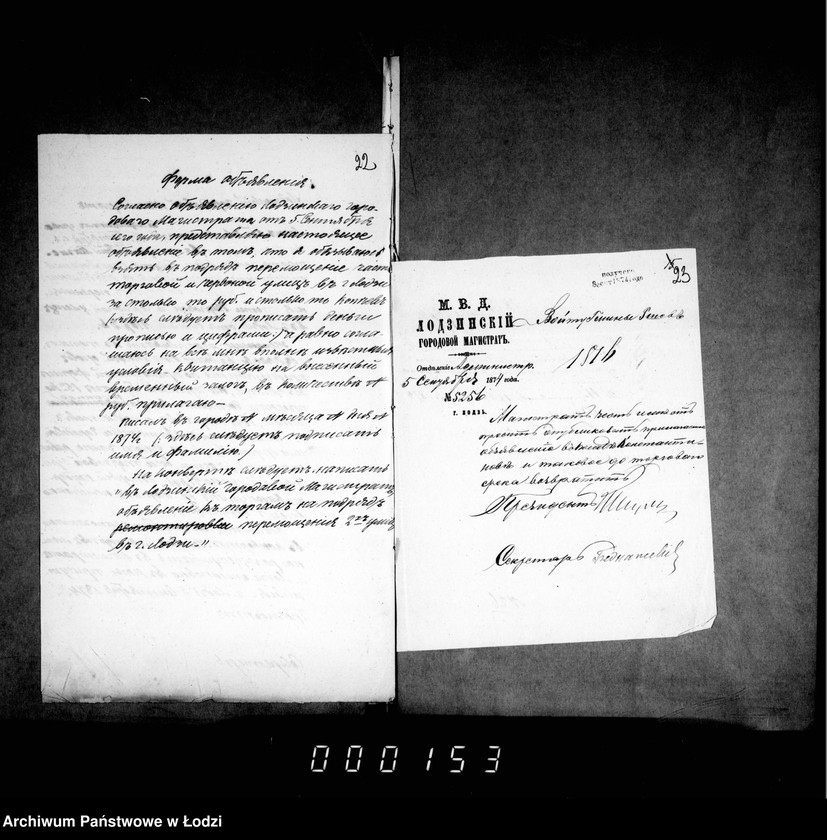 22
Форма объявленія.
Согласно объявленію Лодзинскаго горо-
доваго Магистрата отъ 5 Сентября
сего года, представляю настоящее
объявленіе въ томъ, что я обязываюсь
взять въ подрядъ перемощеніе части
торговой и улицъ въ г. Лодзи
за столько то руб. и столько то копѣекъ
(здѣсь слѣдуетъ прописать деньги
прописью и цифрами) и равно согла-
шаюсь на всѣ мнѣ вполнѣ извѣстныя
условія. Квитанцію на внесенный
временный залогъ, въ количествѣ N
руб. прилагаю.
Писалъ въ городѣ N мѣсяца N дня N
1874 г. (здѣсь слѣдуетъ подписать
имя и фамилію)
На конвертѣ слѣдуетъ написать
"въ Лодзинскій городовой Магистратъ
объявленіе къ торгамъ на подрядъ
перемощенія 2хъ улицъ
въ г. Лодзи."
23
получено
1874 года
М. В. Д.
ЛОДЗИНСКІЙ
ГОРОДОВОЙ МАГИСТРАТЪ.
Войту Гмины
Отдѣленіе Администр.
1516
5 Сентября 1874 года.
№ 5256
Г. ЛОДЗЬ.
Магистратъ честь имѣетъ
просить опубликовать прилагаемое
объявленіе въ посадѣ Константи-
новѣ и таковое до торговаго
срока возвратить
Президентъ
Секретарь
000153
Archiwum Państwowe w Łodzi